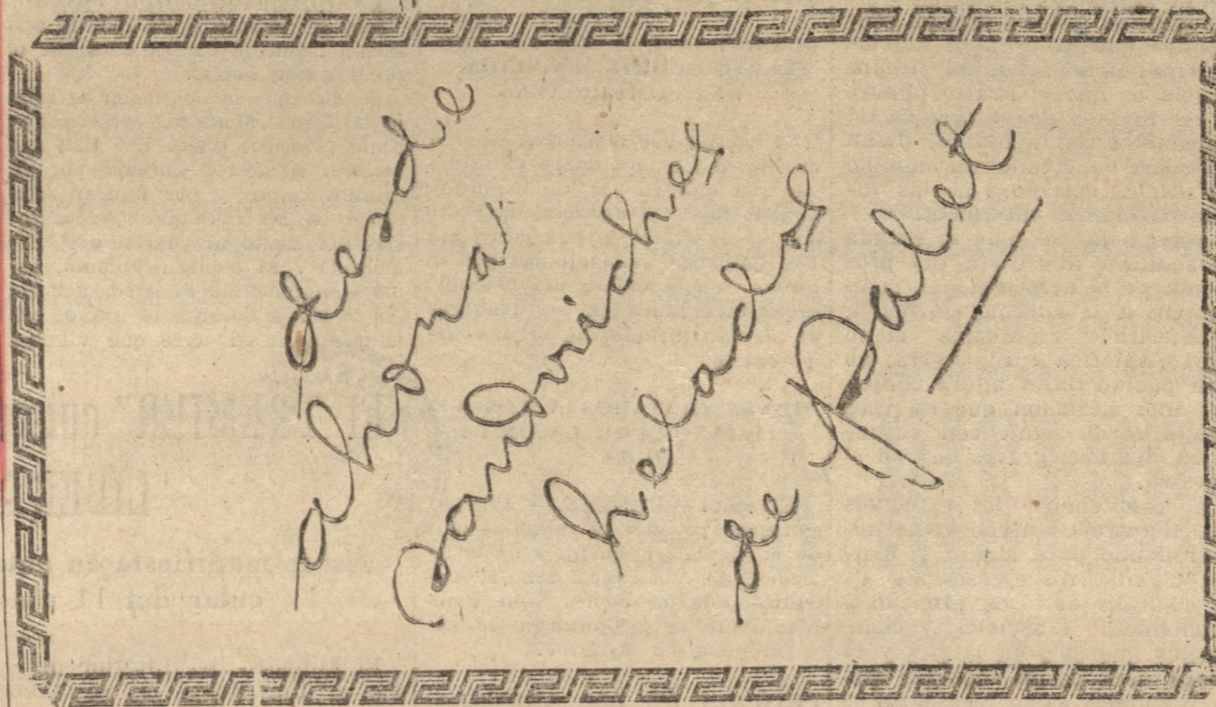 desde
ahora
Sandwiches
helados
de Palet